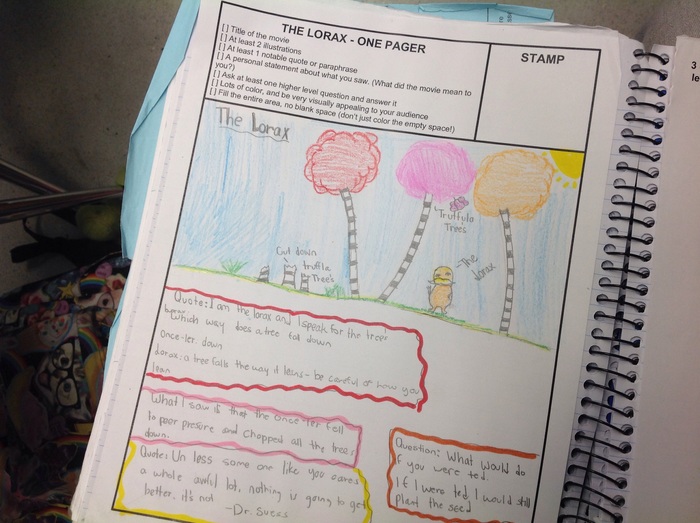 THE LORAX - ONE PAGER
STAMP
[ ] Title of the movie
[ ] At least 2 illustrations
[ ] At least 1 notable quote or paraphrase
[ ] A personal statement about what you saw. (What did the movie mean to
you?)
[ ] Ask at least one higher level question and answer it
[ ] Lots of color, and be very visually appealing to your audience
[ ] Fill the entire area, no blank space (don't just color the empty space!)
The Lorax
Truffula
Trees
The
Lorax
Cut down
truffla
Tree's
Quote: I am the lorax and I speak for the trees
Which way does a tree fall down
once-ler: down
lorax: a tree falls the way it leans - be careful of how you
lean
What I saw is that the once-ler fell
to peer presure and chopped all the trees
down.
Quote: Un less some one like you cares
a whole awful lot, nothing is going to get
better. it's not
- Dr. Suess
Question: What would do
if you were ted
If I were ted I would still
plant the seed
3
le